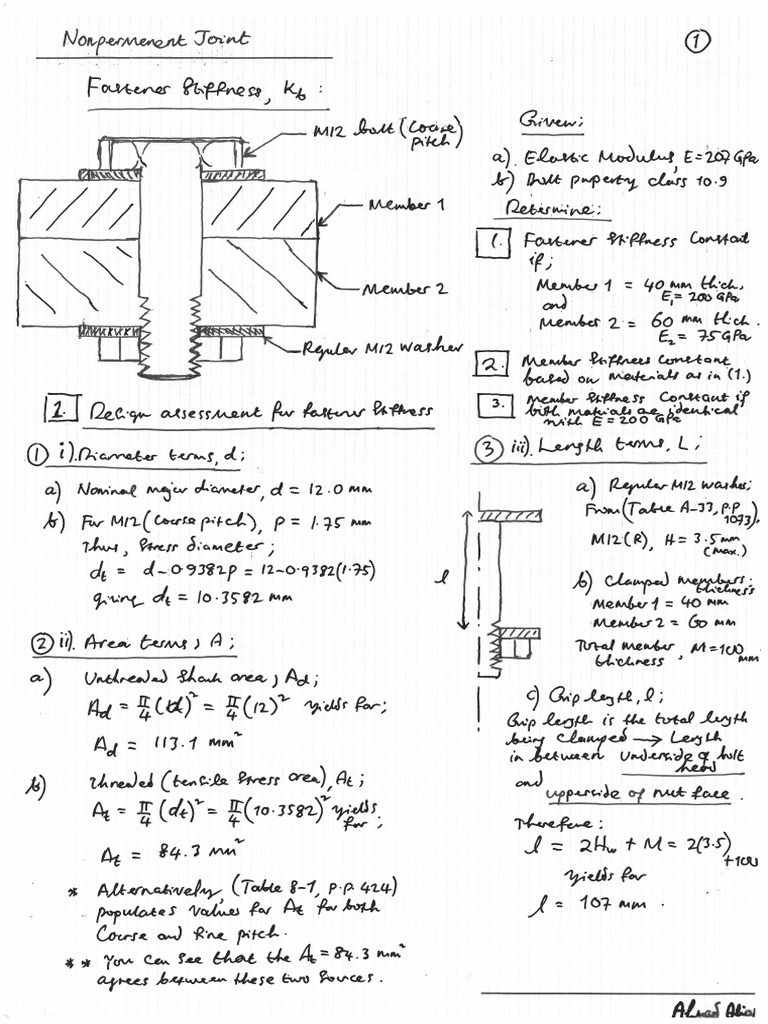 Nonpermenent Joint
1
Fastener Stiffness, Kb :
M12 bolt (Coarse pitch)
Member 1
Member 2
Regular M12 Washer
Given;
a). Elastic Modulus, E = 207 GPa
b) Bolt property class 10.9
Determine;
1. Fastener Stiffness Constant
if;
Member 1 = 40 mm thick,
E₁ = 200 GPa
and
Member 2 = 60 mm thick.
E₂ = 75 GPa
2. Member Stiffness Constant
based on materials as in (1.)
3. Member Stiffness Constant if
both materials are identical
with E = 200 GPa
1. Design assessment for fastener stiffness
① i). Diameter terms, d;
a) Nominal major diameter, d = 12.0 mm
b) For M12 (Coarse pitch), p = 1.75 mm
Thus, Stress diameter;
dt = d - 0.9382p = 12 - 0.9382(1.75)
giving dt = 10.3582 mm
② ii). Area terms, A;
a) Unthreaded Shank area, Ad;
Ad = π/4 (d)² = π/4 (12)² yields for;
Ad = 113.1 mm²
b) Threaded (tensile stress area), At;
At = π/4 (dt)² = π/4 (10.3582)² yields
for;
At = 84.3 mm²
* Alternatively, (Table 8-1, p.p. 424)
populates values for At for both
Coarse and fine pitch.
** You can see that the At = 84.3 mm²
agrees between these two sources.
③ iii). Length terms, L;
l
a) Regular M12 washer;
From (Table A-33, p.p
1073).
M12 (R), H = 3.5 mm
(max.)
b) Clamped members;
thickness
Member 1 = 40 mm
Member 2 = 60 mm
Total member, M = 100 mm
thickness
c) Grip length, l;
Grip length is the total length
being clamped → Length
in between underside of bolt
head
and
upperside of nut face.
Therefore:
l = 2Hw + M = 2(3.5)
+ 100
yields for
l = 107 mm.